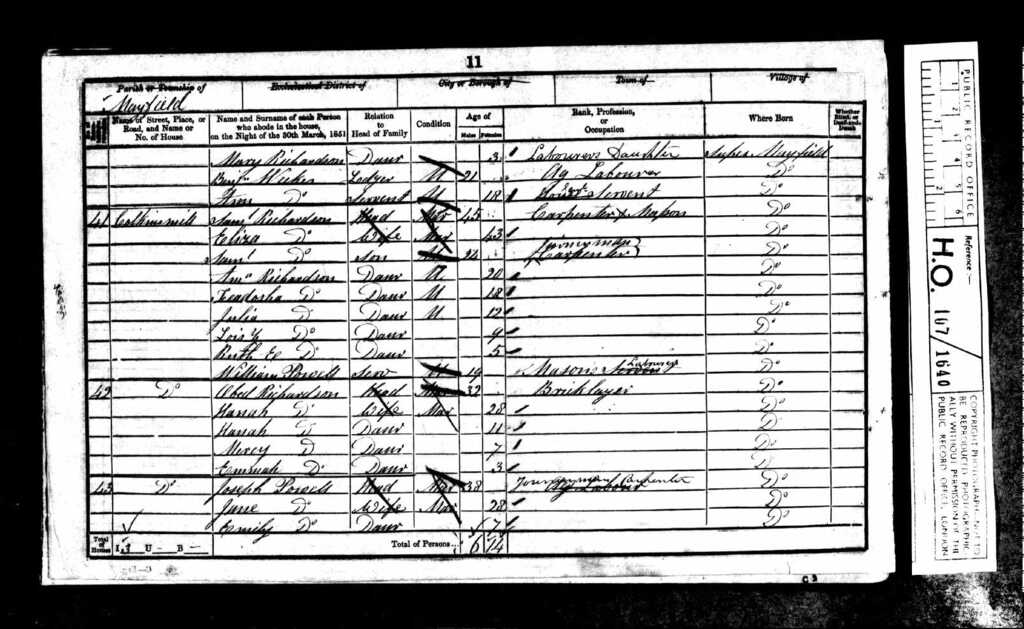 11
Parish or Township of Ecclesiastical District of City or Borough of Town of Village of
Mayfield
Name of Street, Place, or Road, and Name or No. of House
Name and Surname of each Person who abode in the house, on the Night of the 30th March, 1851
Relation to Head of Family
Condition
Age of
Males Females
Rank, Profession, or Occupation
Where Born
Whether Blind, or Deaf-and-Dumb
Mary Richardson Daur 3 Labourers Daughter Mayfield
Weeks Lodger U 21 Ag Labourer Do
Ann Do Servent U 18 Servent Do
41 Saml Richardson Head Mar 45 Carpenter & Mason Do
Eliza Do Wife Mar 43 Do
Saml Do Son U 24 Journeyman Carpenter Do
Richardson Daur U 20 Do
Do Daur U 18 Do
Julia D Daur U 12 Do
Do Daur 9 Do
Ruth E D Daur 5 Do
William Powell Serv U 19 Masons Labourer Do
42 Do Obed Richardson Head Mar 32 Bricklayer Do
Hanah D Wife Mar 28 Do
Hanah D Daur 11 Do
Mercy D Daur 7 Do
Emmah D Daur 3 Do
43 Do Joseph Powell Head Mar 38 Journeyman Carpenter Ag Labour Do
Jane Do Wife Mar 28 Do
Emily Do Daur 7 Do
Total of Houses I U B
Total of Persons... 6 14
PUBLIC RECORD OFFICE
1 2 3 4 5 6
Reference:-
H.O. 107/1640
COPYRIGHT PHOTOGRAPH - NOT TO BE REPRODUCED PHOTOGRAPHICALLY WITHOUT PERMISSION OF THE PUBLIC RECORD OFFICE, LONDON